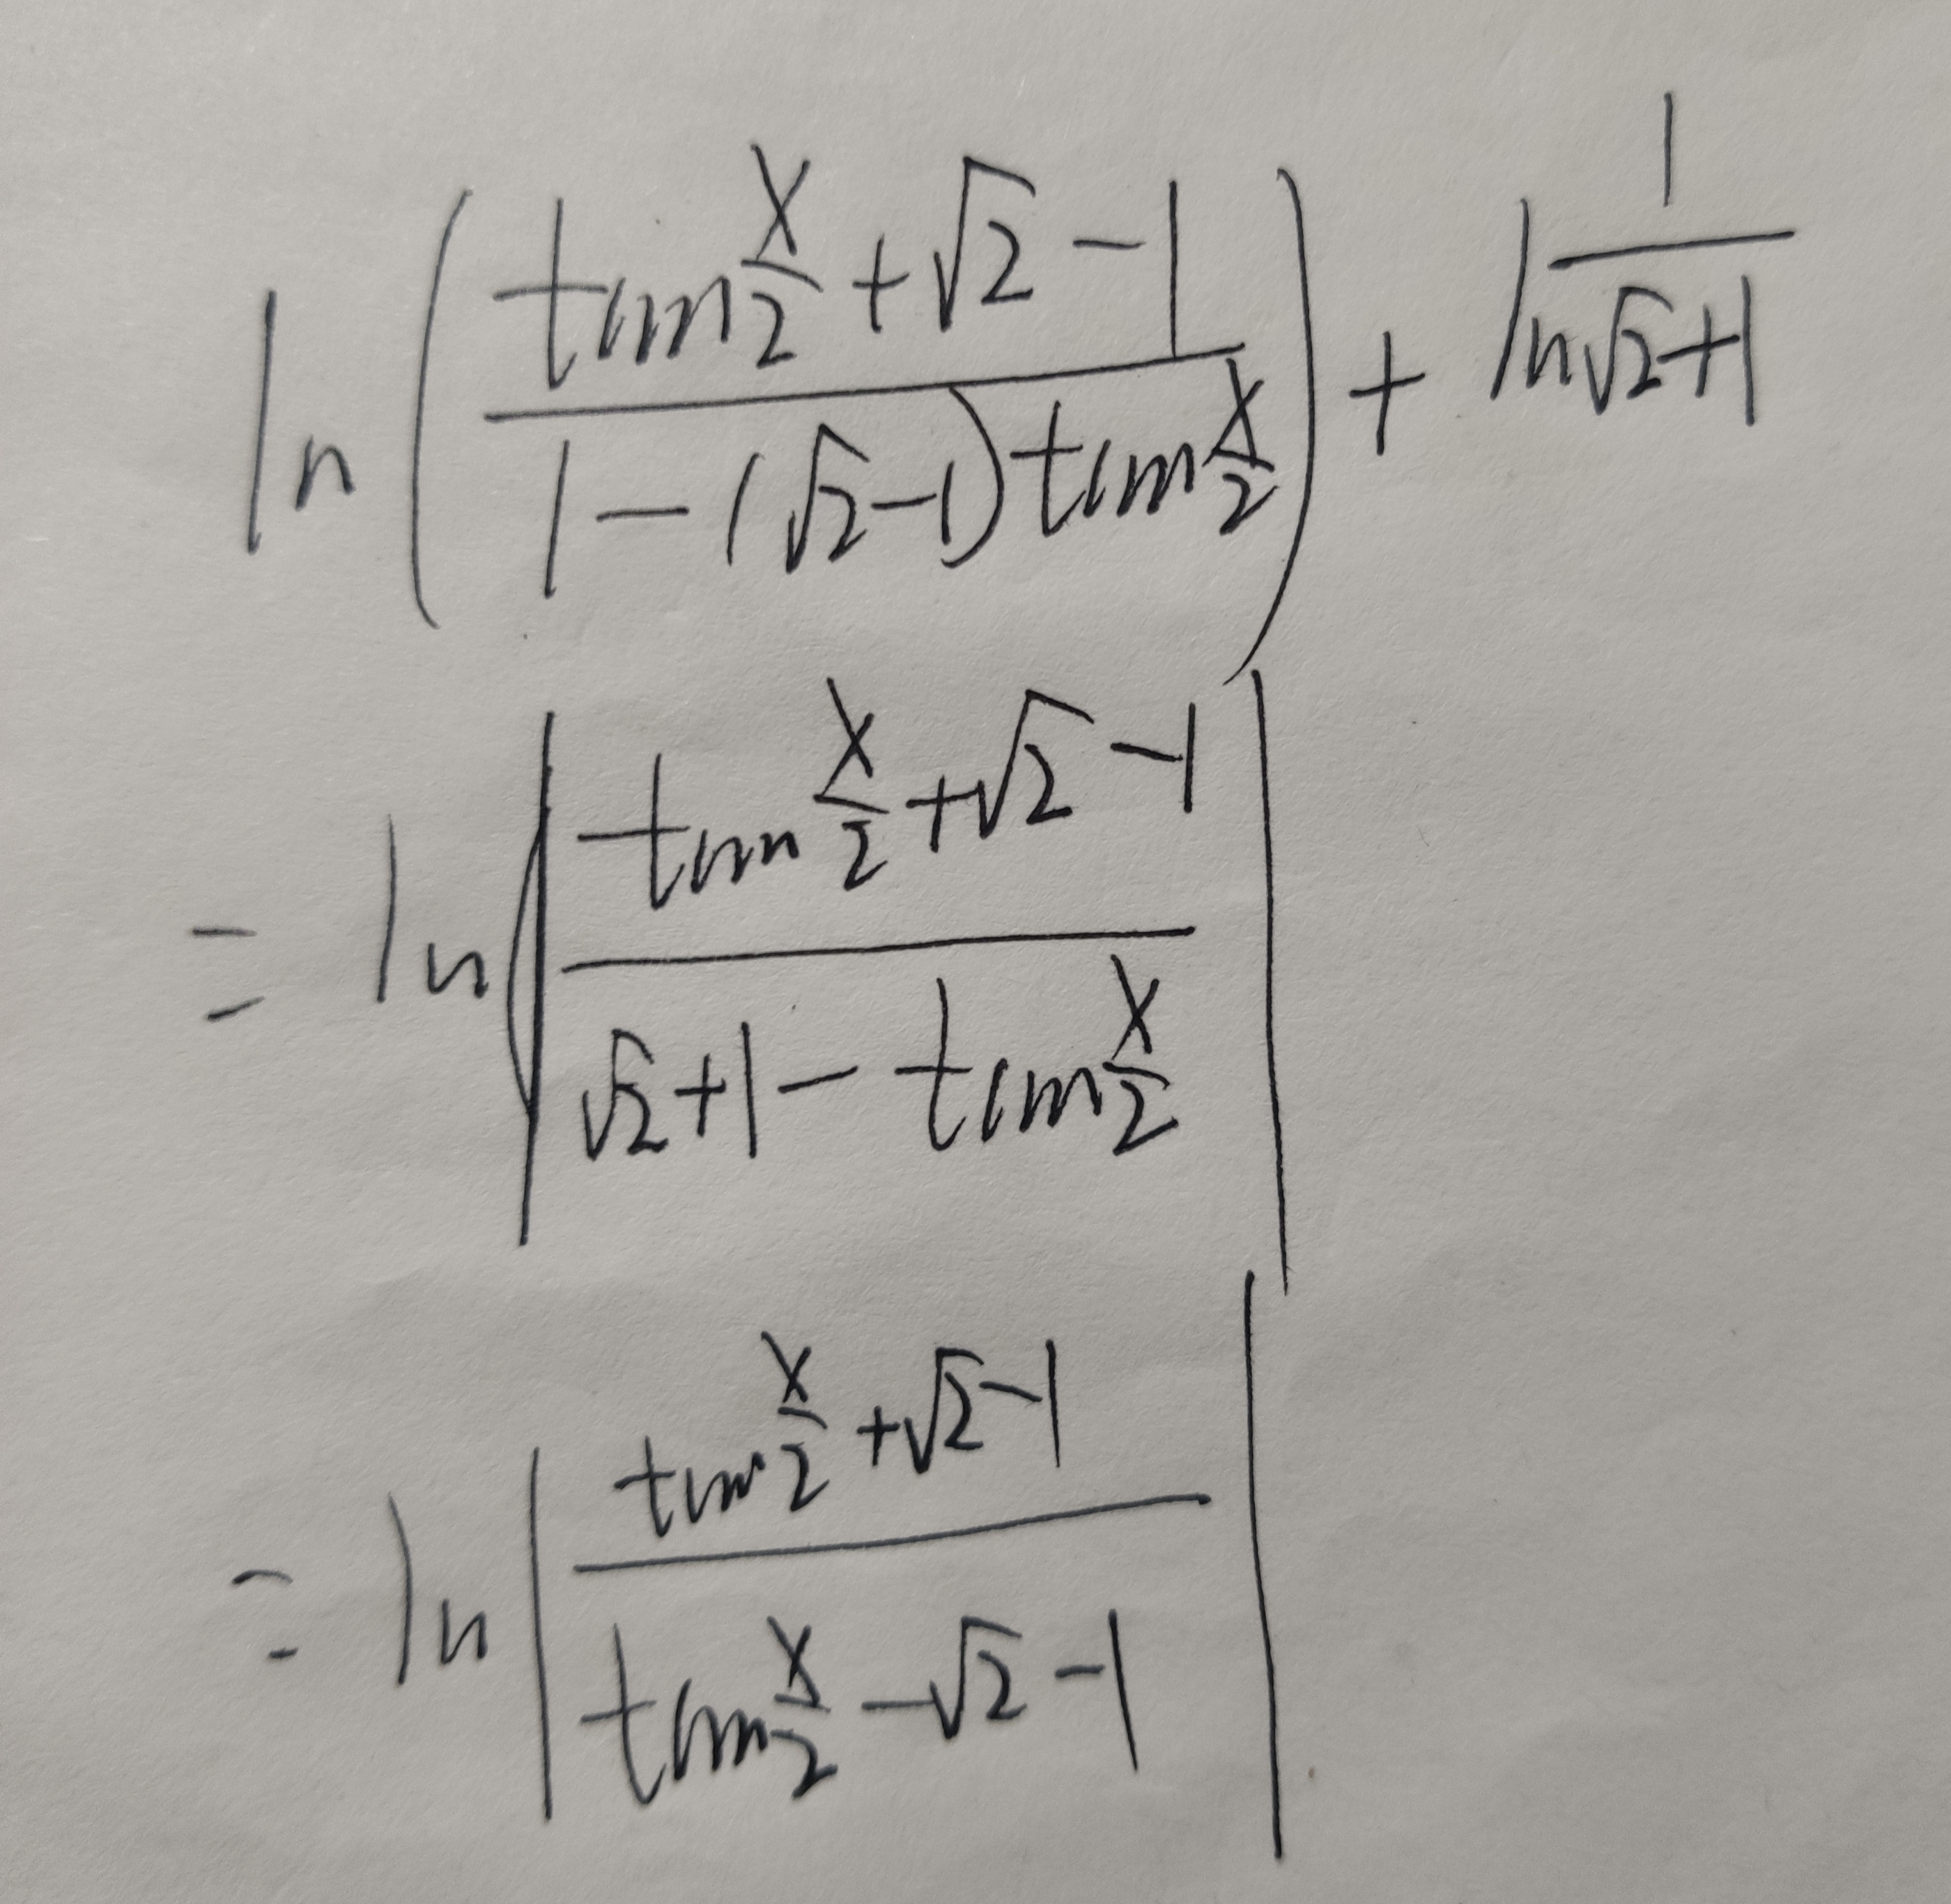 ln( (tan x/2 + √2 - 1) / (1 - (√2 - 1) tan x/2) ) + ln 1/(√2+1)
= ln | (tan x/2 + √2 - 1) / (√2 + 1 - tan x/2) |
= ln | (tan x/2 + √2 - 1) / (tan x/2 - √2 - 1) |